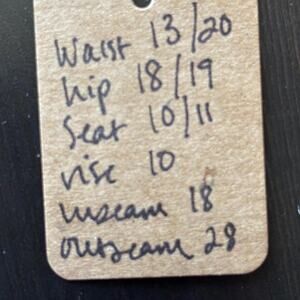 Waist 13/20
hip 18/19
Seat 10/11
rise 10
inseam 18
outseam 28